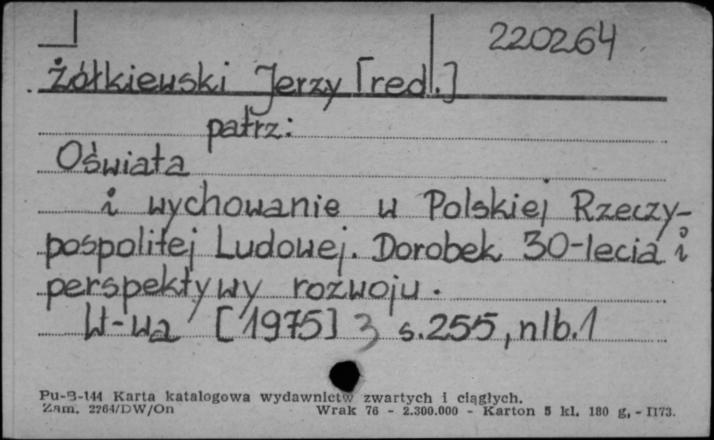 220264
Żółkiewski Jerzy [red.]
patrz:
Oświata
i wychowanie w Polskiej Rzeczy-
pospolitej Ludowej. Dorobek 30-lecia i
perspektywy rozwoju.
W-wa [1975] 3 s.255, nlb.1
Pu-B-144 Karta katalogowa wydawnictw zwartych i ciągłych.
Zam. 2764/DW/On Wrak 76 - 2.300.000 - Karton 5 kl. 180 g, - II73.